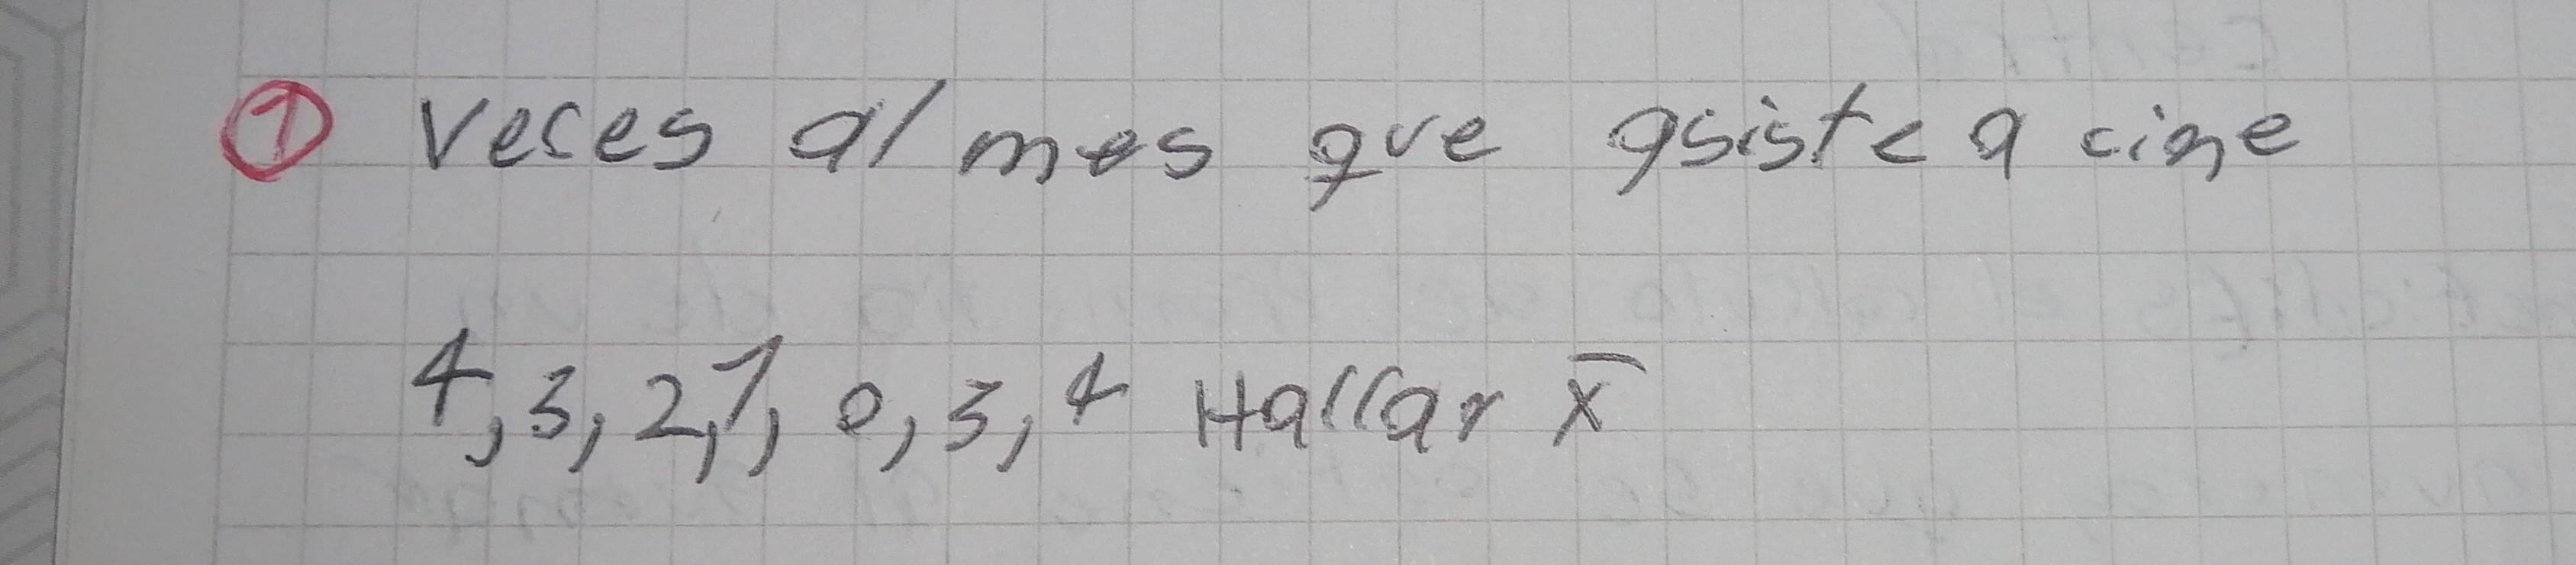 ① Veces al mes que asiste a cine
4, 3, 2, 1, 0, 3, 4 Hallar x̄